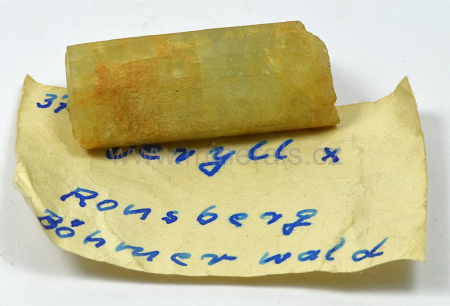 37
Beryll x
Ronsberg
Böhmerwald